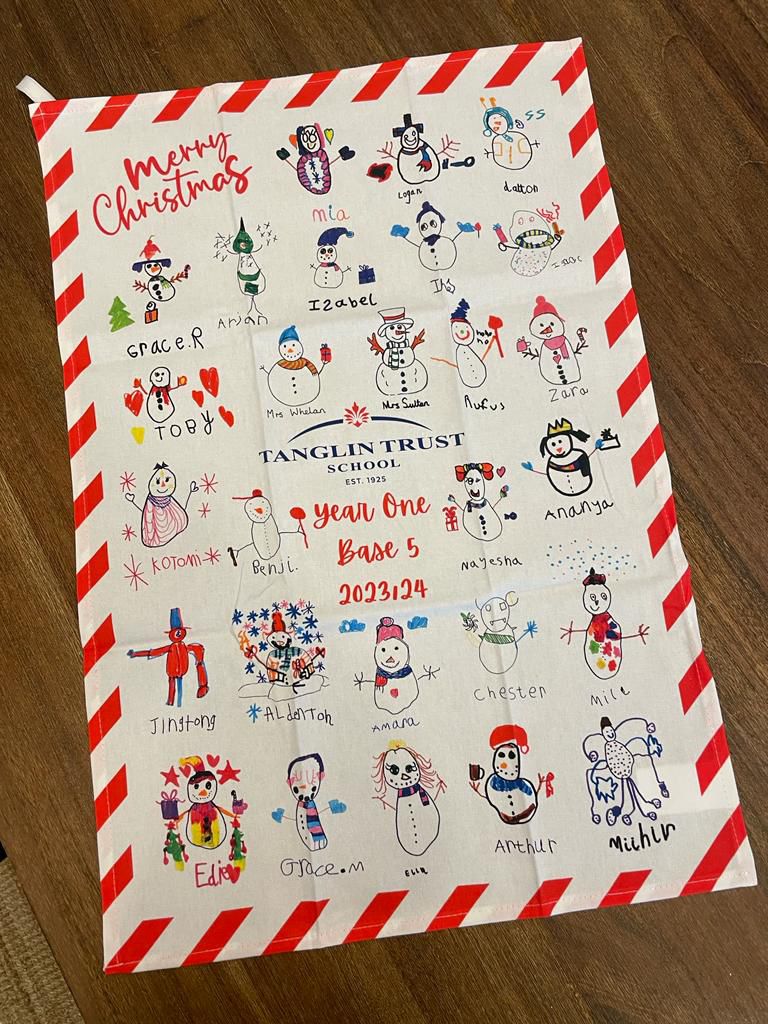 Merry
Christmas
mia
Logan
dalton
ss
Grace.R
Arjan
Izabel
Isaac
TOBY
Mrs Whelan
Mrs Sutton
hoho
ho
Rufus
Zara
TANGLIN TRUST
SCHOOL
EST. 1925
Year One
Base 5
2023/24
KOTOMI
Benji.
Nayesha
Ananya
Jingtong
ALdenTOh
Amara
Chester
Mila
Edie
Grace.M
Ella
Arthur